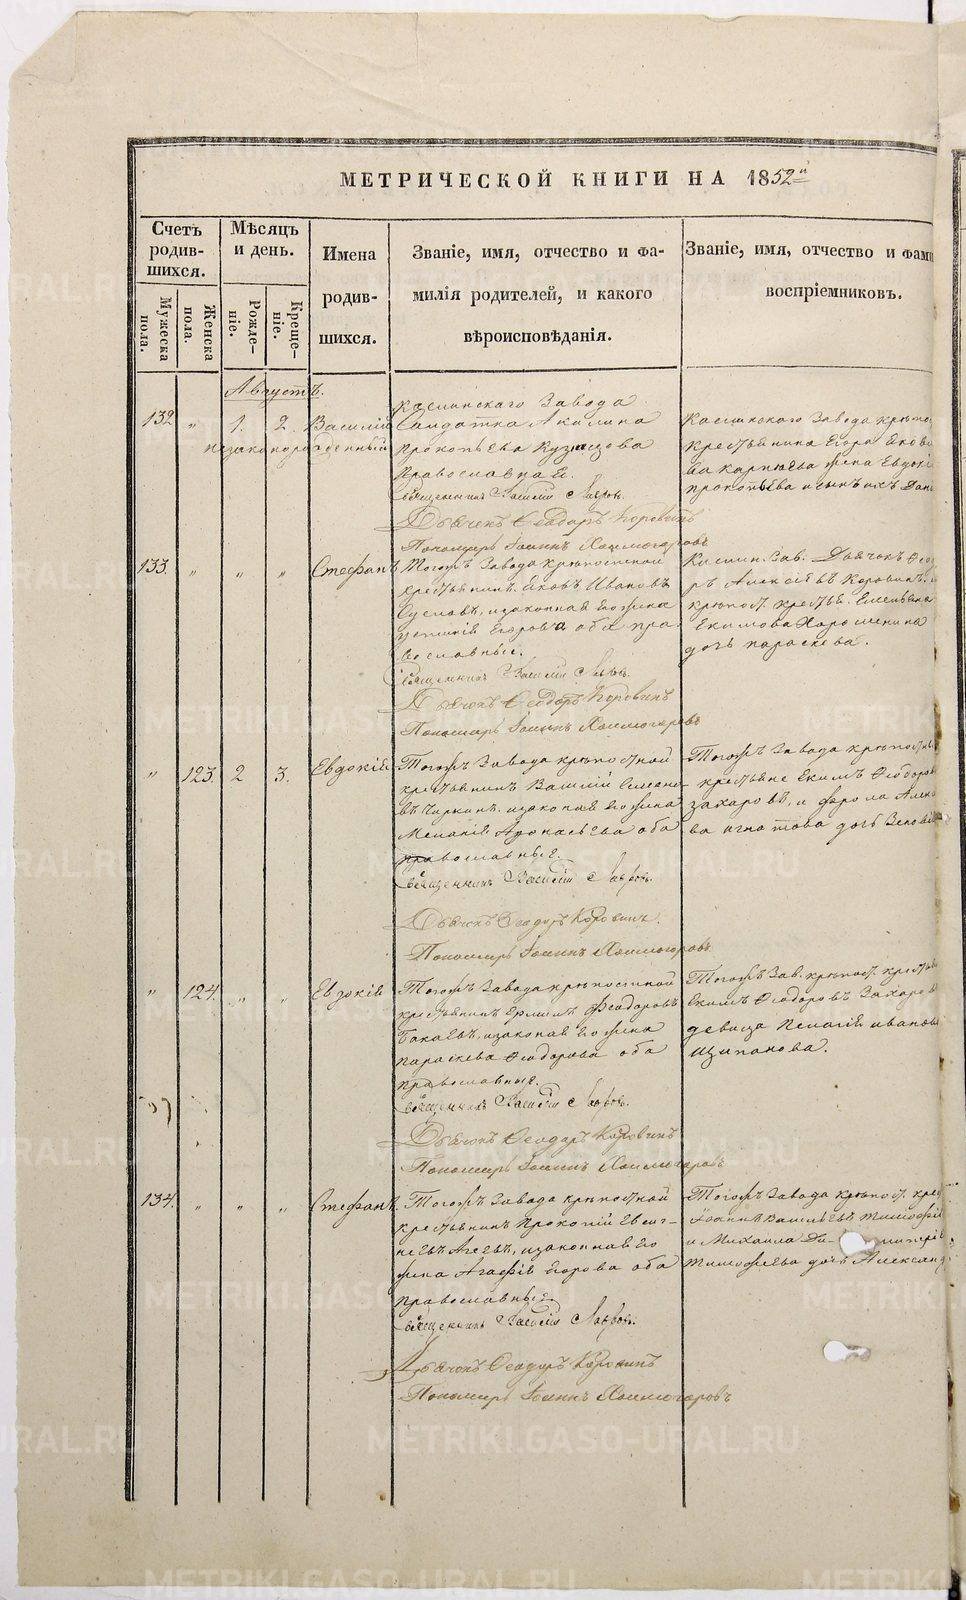 МЕТРИЧЕСКОЙ КНИГИ НА 1852й
Счетъ родив-шихся.
Мужеска пола.
Женска пола.
Мѣсяцъ и день.
Рожде-ніе.
Креще-ніе.
Имена
родив-
шихся.
Званіе, имя, отчество и фа-
милія родителей, и какого
вѣроисповѣданія.
Званіе, имя, отчество и фами
воспріемниковъ.
Августъ.
132 " 1. 2. Василій
незаконорожденный
Каслинскаго Завода
Солдатка Акилина
Прокопьева Кузнецова
Православная.
Священникъ Василій Лавровъ.
Дьячекъ Ѳеодоръ Коровинъ
Пономарь Іоаннъ Холмогоровъ
Каслинскаго Завода крѣпо
крестьянина Егора Яковл
ва жена Евдокі
прокопьева и сынъ ихъ Дан
133. " " " Стефанъ
Тогожъ Завода крѣпостной
крестьянинъ Яковъ Ивановъ
Сусловъ, изаконная его жена
Егорова оба пра-
вославные.
Священникъ Василій Лавровъ.
Дьячокъ Ѳеодоръ Коровинъ
Пономарь Іоаннъ Холмогоровъ
Каслин. Зав. Дьячокъ Ѳеодо
ръ Алексѣевъ Коровинъ, и
крѣпост. крестья. Емельяна
Екимова Харошенина
дочь параскева.
" 123. 2 3. Евдокія
Тогожъ Завода крѣпостной
крестьянинъ Василій
изаконная его жена
Меланія Афонасьева оба
православные.
Священникъ Василій Лавровъ.
Дьячокъ Ѳеодоръ Коровинъ.
Пономарь Іоаннъ Холмогоровъ
Тогожъ Завода крѣпостны
крестьяне Екимъ Ѳеодоров
захаровъ, и фрола Алекс
ва игнатова дочь Зеновія
" 124. " " Евдокія
Тогожъ Завода крѣпостной
крестьянинъ Ермилъ Ѳеодоровъ
Бакаевъ, изаконная его жена
параскева Ѳеодорова оба
православные.
Священникъ Василій Лавровъ.
Дьячокъ Ѳеодоръ Коровинъ
Пономарь Іоаннъ Холмогоровъ
Тогожъ Зав. крѣпост. крестья
Екимъ Ѳеодоровъ Захаров
девица Пелагія иванов
Щипанова.
134. " " " Стефанъ
Тогожъ Завода крѣпостной
крестьянинъ Прокопій Евсиг-
неевъ Агѣевъ, изаконная его
жена Агафія Егорова оба
православные.
Священникъ Василій Лавровъ.
Дьячокъ Ѳеодоръ Коровинъ
Пономарь Іоаннъ Холмогоровъ
Тогожъ Завода крѣпост. крес
Іоаннъ Васильевъ
и Михаила
тимофѣева дочь Александ
METRIKI.GASO-URAL.RU